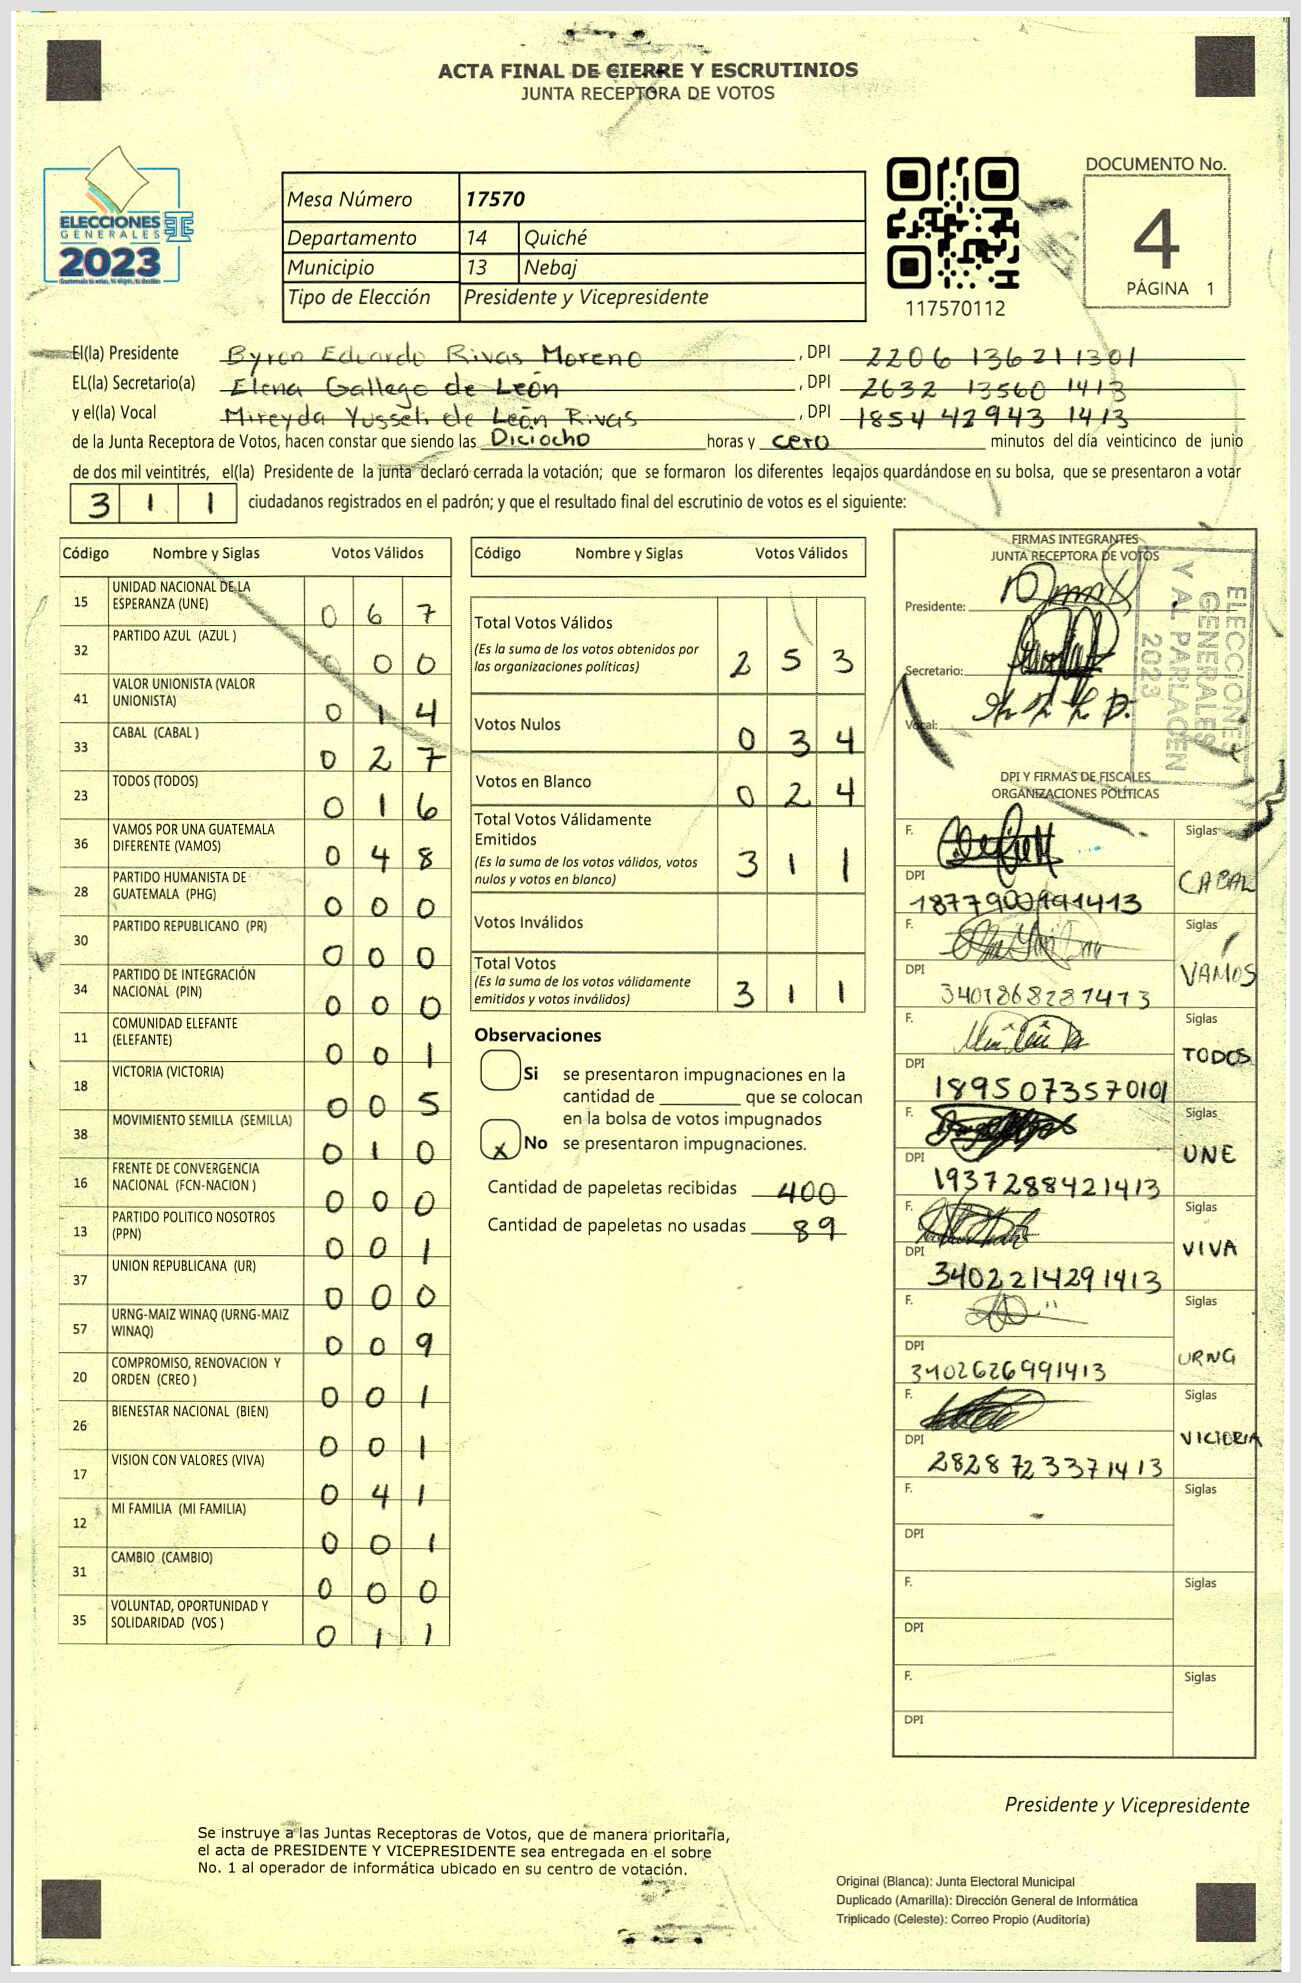 ACTA FINAL DE CIERRE Y ESCRUTINIOS
JUNTA RECEPTORA DE VOTOS
ELECCIONES
GENERALES
2023
Mesa Número 17570
Departamento 14 Quiché
Municipio 13 Nebaj
Tipo de Elección Presidente y Vicepresidente
117570112
DOCUMENTO No.
4
PÁGINA 1
El(la) Presidente Byron Eduardo Rivas Moreno , DPI 2206 13621 1301
EL(la) Secretario(a) Elena Gallego de León , DPI 2632 13560 1413
y el(la) Vocal Mireyda Yusseli de León Rivas , DPI 1854 42943 1413
de la Junta Receptora de Votos, hacen constar que siendo las Diciocho horas y cero minutos del día veinticinco de junio
de dos mil veintitrés, el(la) Presidente de la junta declaró cerrada la votación; que se formaron los diferentes legajos guardándose en su bolsa, que se presentaron a votar
3 1 1 ciudadanos registrados en el padrón; y que el resultado final del escrutinio de votos es el siguiente:
Código Nombre y Siglas Votos Válidos
15 UNIDAD NACIONAL DE LA ESPERANZA (UNE) 0 6 7
32 PARTIDO AZUL (AZUL ) 0 0 0
41 VALOR UNIONISTA (VALOR UNIONISTA) 0 1 4
33 CABAL (CABAL ) 0 2 7
23 TODOS (TODOS) 0 1 6
36 VAMOS POR UNA GUATEMALA DIFERENTE (VAMOS) 0 4 8
28 PARTIDO HUMANISTA DE GUATEMALA (PHG) 0 0 0
30 PARTIDO REPUBLICANO (PR) 0 0 0
34 PARTIDO DE INTEGRACIÓN NACIONAL (PIN) 0 0 0
11 COMUNIDAD ELEFANTE (ELEFANTE) 0 0 1
18 VICTORIA (VICTORIA) 0 0 5
38 MOVIMIENTO SEMILLA (SEMILLA) 0 1 0
16 FRENTE DE CONVERGENCIA NACIONAL (FCN-NACION ) 0 0 0
13 PARTIDO POLITICO NOSOTROS (PPN) 0 0 1
37 UNION REPUBLICANA (UR) 0 0 0
57 URNG-MAIZ WINAQ (URNG-MAIZ WINAQ) 0 0 9
20 COMPROMISO, RENOVACION Y ORDEN (CREO ) 0 0 1
26 BIENESTAR NACIONAL (BIEN) 0 0 1
17 VISION CON VALORES (VIVA) 0 4 1
12 MI FAMILIA (MI FAMILIA) 0 0 1
31 CAMBIO (CAMBIO) 0 0 0
35 VOLUNTAD, OPORTUNIDAD Y SOLIDARIDAD (VOS ) 0 1 1
Código Nombre y Siglas Votos Válidos
Total Votos Válidos
(Es la suma de los votos obtenidos por
las organizaciones políticas) 2 5 3
Votos Nulos 0 3 4
Votos en Blanco 0 2 4
Total Votos Válidamente
Emitidos
(Es la suma de los votos válidos, votos
nulos y votos en blanco) 3 1 1
Votos Inválidos
Total Votos
(Es la suma de los votos válidamente
emitidos y votos inválidos) 3 1 1
Observaciones
Si se presentaron impugnaciones en la
cantidad de ________ que se colocan
en la bolsa de votos impugnados
x No se presentaron impugnaciones.
Cantidad de papeletas recibidas 400
Cantidad de papeletas no usadas 89
FIRMAS INTEGRANTES
JUNTA RECEPTORA DE VOTOS
Presidente:
Secretario:
Vocal:
ELECCIONES
GENERALES
Y AL PARLACEN
2023
DPI Y FIRMAS DE FISCALES
ORGANIZACIONES POLÍTICAS
F. Siglas
DPI CABAL
F. Siglas
DPI VAMOS
3401868281413
F. Siglas
DPI TODOS
1895073570101
F. Siglas
DPI UNE
1937288421413
F. Siglas
DPI VIVA
3402214291413
F. Siglas
DPI URNG
3402626991413
F. Siglas
DPI VICTORIA
2828723371413
F. Siglas
DPI
F. Siglas
DPI
F. Siglas
DPI
Presidente y Vicepresidente
Se instruye a las Juntas Receptoras de Votos, que de manera prioritaria,
el acta de PRESIDENTE Y VICEPRESIDENTE sea entregada en el sobre
No. 1 al operador de informática ubicado en su centro de votación.
Original (Blanca): Junta Electoral Municipal
Duplicado (Amarilla): Dirección General de Informática
Triplicado (Celeste): Correo Propio (Auditoría)